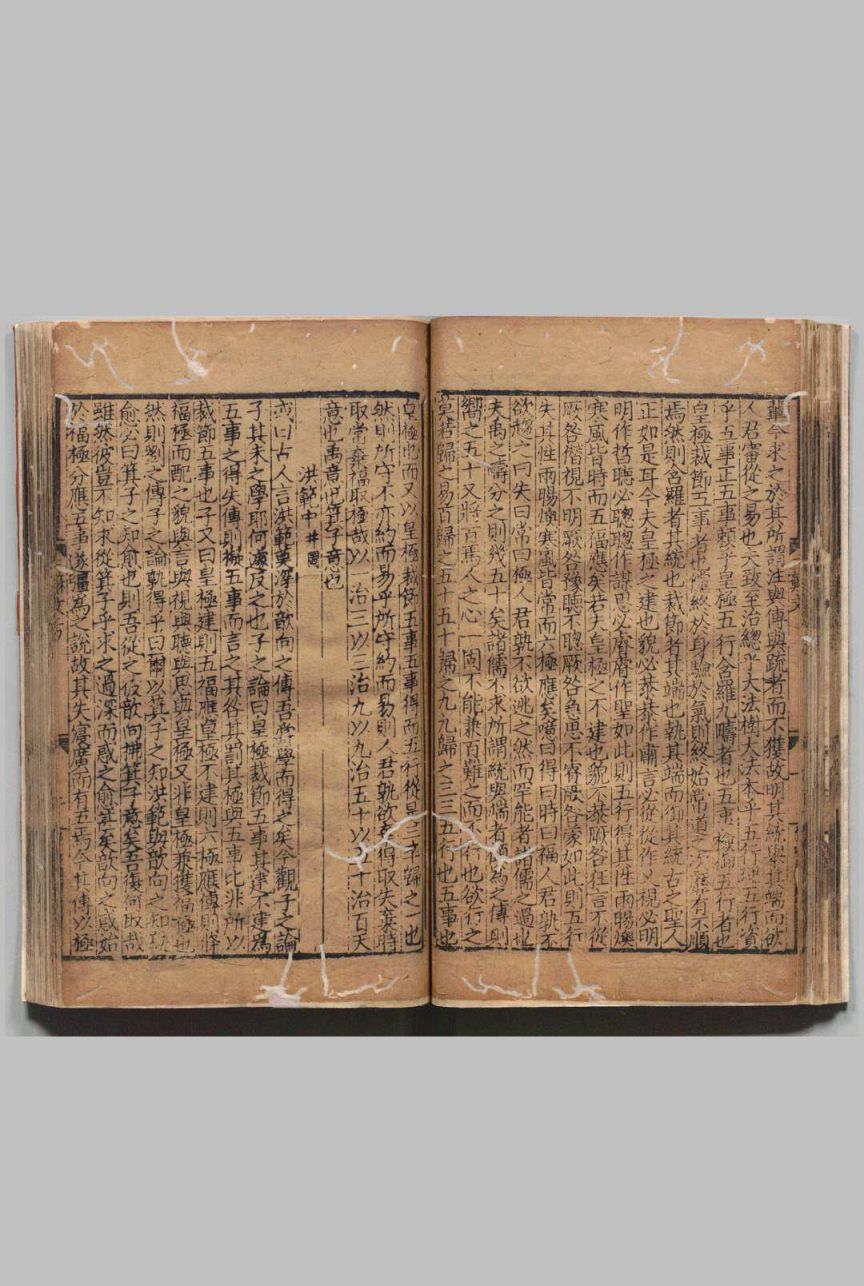 葦今求之於其所謂注與傳與疏者而不獲故明其統與其端而欲
人君審從之易也夫致至治總乎大法樹大法本乎五行理五行資
乎五事正五事賴乎皇極五行含羅九疇者也五事檢御五行者也
皇極裁節五事者也儻終於身驗於氣則終始常道之次靡有不順
焉然則含羅者其統也裁節者其端也執其端而御其統古之聖人
正如是耳今夫皇極之建也貌必恭恭作肅言必從從作乂視必明
明作哲聽必聰聰作謀思必睿睿作聖如此則五行得其性雨暘燠
寒風皆時而五福應矣若夫皇極之不建也貌不恭厥咎狂言不從
厥咎僭視不明厥咎豫聽不聰厥咎急思不睿厥咎蒙如此則五行
失其性雨暘燠寒風皆常而六極應矣噫曰得曰時曰福人君孰不
欲趨之曰失曰常曰極人君孰不欲逃之然而罕能者諸儒之過也
夫禹之疇分之則幾五十矣諸儒不求所謂統與端者顧為之傳則
嚮之五十又將百焉人之心一固不能兼百難之而不行也欲行之
莫若歸之易百歸之五十五十歸之九九歸之三三五行也五事也
皇極也而又以皇極裁節五事五事得而五行從是三卒歸之一也
然則所守不亦約而易乎所守約而易則人君孰欲棄得取失棄時
取常棄福取極哉以一治三以三治九以九治五十以五十治百天
意也禹意也箕子意也
洪範中 并圖
或曰古人言洪範莫深於歆向之傳吾嘗學而得之矣今觀子之論
子其未之學耶何遽反之也子之論曰皇極裁節五事其建不建為
五事之得失傳則擬五事而言之其咎其罰其極與五事比非所以
裁節五事也子又曰皇極建則五福應皇極不建則六極應傳則條
福極而配之貌與言與視與聽與思與皇極又非皇極兼獲福極也
然則劉之傳子之論孰得乎曰爾以箕子之知洪範與歆向之知孰
愈必曰箕子之知愈也則吾從之彼歆向拂箕子意矣吾復何取哉
雖然彼豈不知求從箕子乎求之過深而惑之愈甚矣歆向之惑始
於福極分應五事遂彊為之說故其失寖廣而有五焉今其傳以極